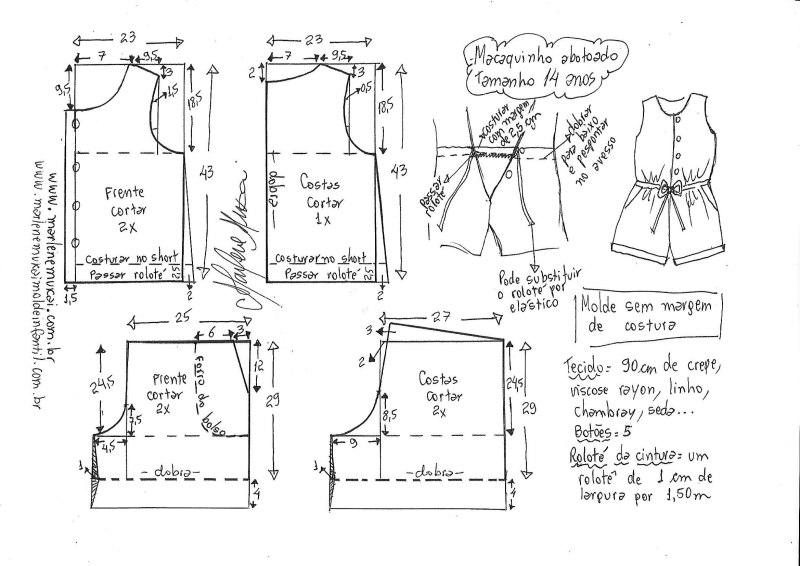 Macaquinho abotoado
Tamanho 14 anos
23
7
9,5
3
9,5
1,5
18,5
43
Frente
cortar
2x
Costurar no short
Passar roloté
2,5
1,5
2
23
7
9,5
2
3
0,5
18,5
43
dobra
Costas
cortar
1x
costurar no short
Passar roloté
2,5
2
www.marlenemukai.com.br
www.marlenemukaimoldeinfantil.com.br
Marlene Mukai
costurar
com margem
de 2,5 cm
dobrar
para baixo
e pespontar
no avesso
passar
roloté
Pode substituir
o roloté por
elástico
Molde sem margem
de costura
25
6
3
12
24,5
Frente
cortar
2x
Forro do bolso
29
7,5
4,5
1
-dobra-
4
27
3
2
Costas
cortar
2x
24,5
29
8,5
9
1
-dobra-
4
Tecido= 90cm de crepe,
viscose rayon, linho,
chambray, seda...
Botões= 5
Roloté da cintura= um
roloté de 1 cm de
largura por 1,50m